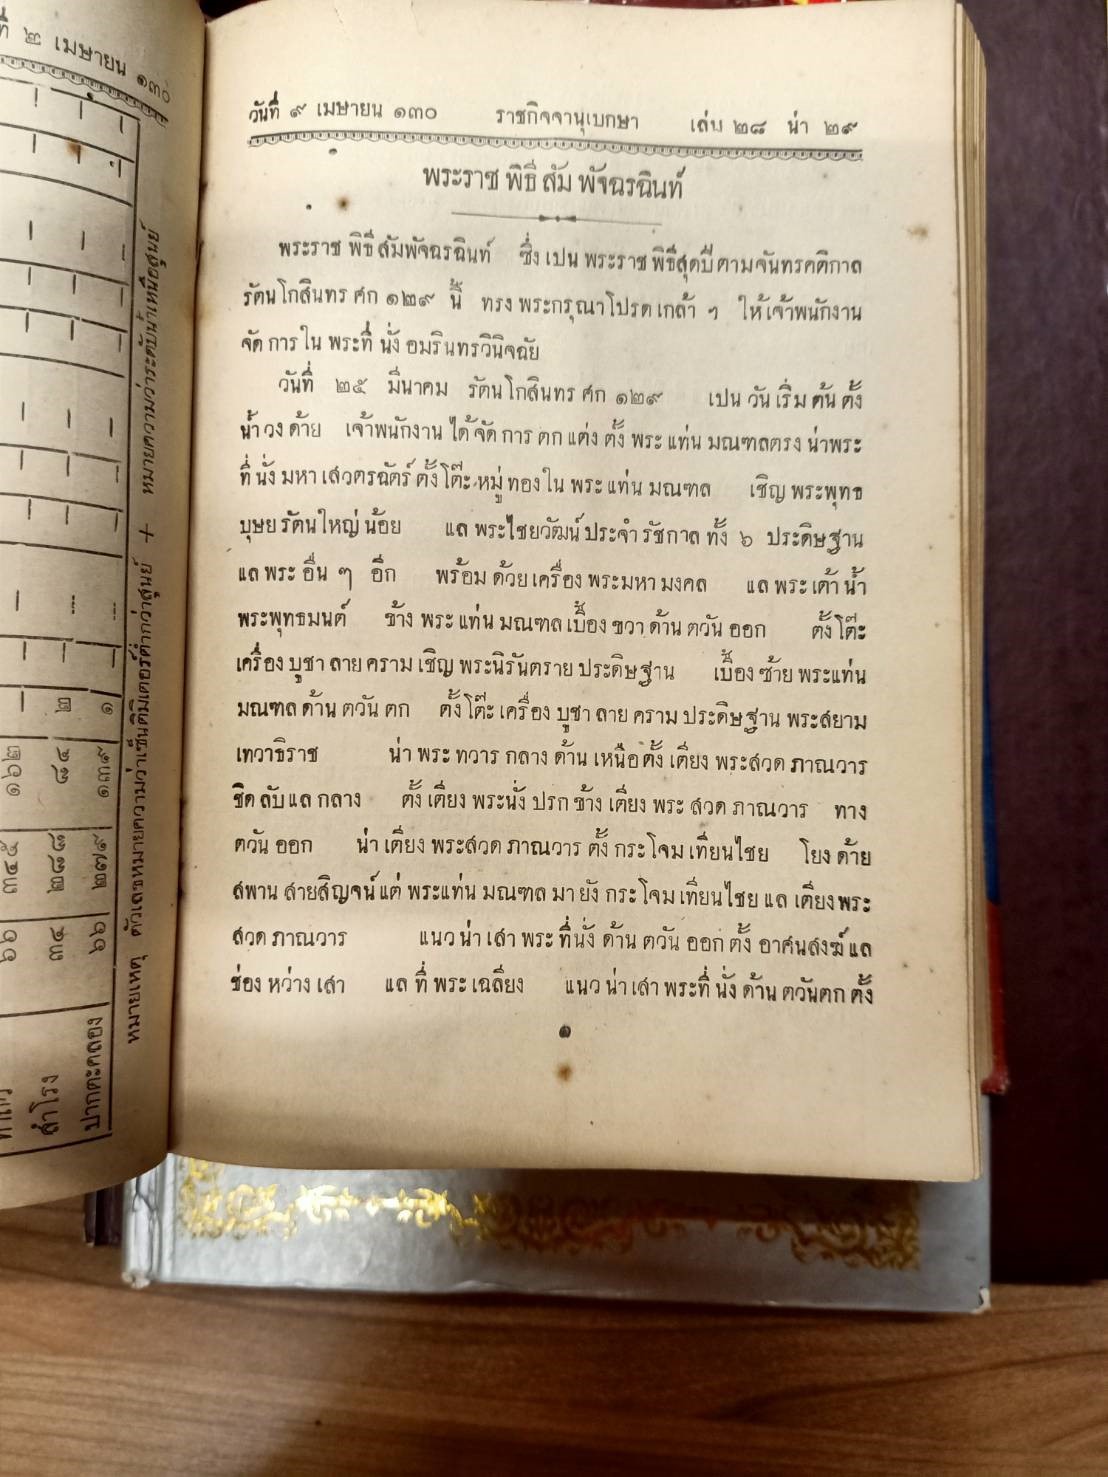 ที่ ๒ เมษายน ๑๓๐
วันที่ ๙ เมษายน ๑๓๐ ราชกิจจานุเบกษา เล่ม ๒๘ น่า ๒๙
พระราชพิธีสัมพัจฉรฉินท์
พระราชพิธีสัมพัจฉรฉินท์ ซึ่งเปนพระราชพิธีสุดปีตามจันทรคติกาล
รัตนโกสินทรศก ๑๒๙ นี้ ทรงพระกรุณาโปรดเกล้า ฯ ให้เจ้าพนักงาน
จัดการในพระที่นั่งอมรินทรวินิจฉัย
วันที่ ๒๕ มีนาคม รัตนโกสินทรศก ๑๒๙ เปนวันเริ่มต้นตั้ง
น้ำวงด้าย เจ้าพนักงานได้จัดการตกแต่งตั้งพระแท่นมณฑลตรงน่าพระ
ที่นั่งมหาเสวตรฉัตร์ ตั้งโต๊ะหมู่ทองในพระแท่นมณฑล เชิญพระพุทธ
บุษยรัตนใหญ่น้อย แลพระไชยวัฒน์ประจำรัชกาลทั้ง ๖ ประดิษฐาน
แลพระอื่น ๆ อีก พร้อมด้วยเครื่องพระมหามงคล แลพระเต้าน้ำ
พระพุทธมนต์ ข้างพระแท่นมณฑลเบื้องขวาด้านตวันออก ตั้งโต๊ะ
เครื่องบูชาลายครามเชิญพระนิรันตรายประดิษฐาน เบื้องซ้ายพระแท่น
มณฑลด้านตวันตก ตั้งโต๊ะเครื่องบูชาลายครามประดิษฐานพระสยาม
เทวาธิราช น่าพระทวารกลางด้านเหนือตั้งเตียงพระสวดภาณวาร
ชิดลับแลกลาง ตั้งเตียงพระนั่งปรกข้างเตียงพระสวดภาณวาร ทาง
ตวันออก น่าเตียงพระสวดภาณวารตั้งกระโจมเทียนไชย โยงด้าย
สพานสายสิญจน์แต่พระแท่นมณฑลมายังกระโจมเทียนไชยแลเตียงพระ
สวดภาณวาร แนวน่าเสาพระที่นั่งด้านตวันออกตั้งอาศนสงฆ์แล
ช่องหว่างเสา แลที่พระเฉลี่ยง แนวน่าเสาพระที่นั่งด้านตวันตกตั้ง
๑
๑๖๒ ๘๔ ๑๓๙
๓๔๕ ๒๘๘ ๒๗๙
๖๖ ๓๔ ๖๖
สำโรง
ปากตะคลอง
หมายเหตุ ตัวเลขหมายความว่าเซ็นติมิเตอร์ต่ำกว่าสูนย์ + หมายความว่าระดับน้ำเหนือสูนย์